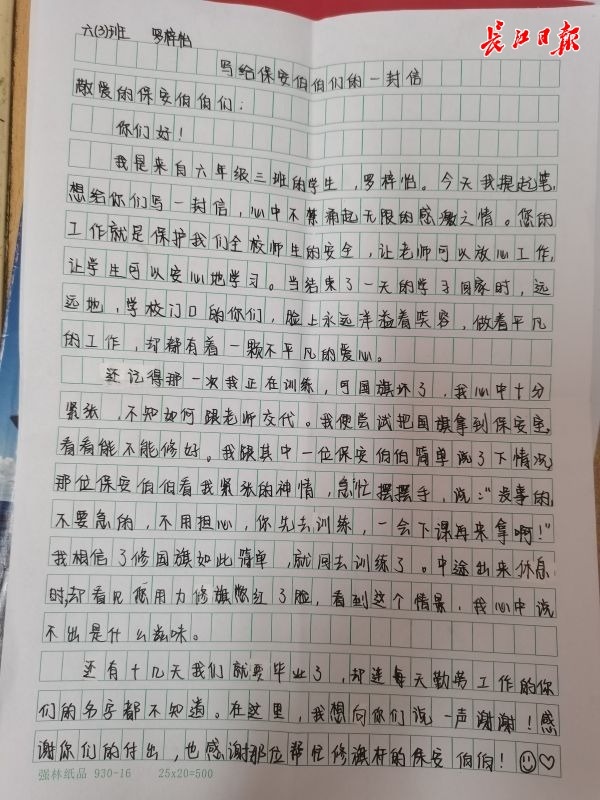 长江日报
六(3)班 罗梓怡
写给保安伯伯们的一封信
敬爱的保安伯伯们:
你们好!
我是来自六年级三班的学生,罗梓怡。今天我提起笔,
想给你们写一封信,心中不禁涌起无限的感激之情。您的
工作就是保护我们全校师生的安全,让老师可以放心工作,
让学生可以安心地学习。当结束了一天的学习回家时,远
远地,学校门口的你们,脸上永远洋溢着笑容,做着平凡
的工作,却都有着一颗不平凡的爱心。
还记得那一次我正在训练,可国旗坏了,我心中十分
紧张,不知如何跟老师交代。我便尝试把国旗拿到保安室,
看看能不能修好。我跟其中一位保安伯伯简单说了下情况,
那位保安伯伯看我紧张的神情,急忙摆摆手,说:“没事的,
不要急的,不用担心,你先去训练,一会下课再来拿啊!”
我相信了修国旗如此简单,就回去训练了。中途出来休息
时,却看见您用力修旗憋红了脸,看到这个情景,我心中说
不出是什么滋味。
还有十几天我们就要毕业了,却连每天勤劳工作的你
们的名字都不知道。在这里,我想向你们说一声谢谢!感
谢你们的付出,也感谢那位帮忙修旗杆的保安伯伯!
强林纸品 930-16 25x20=500